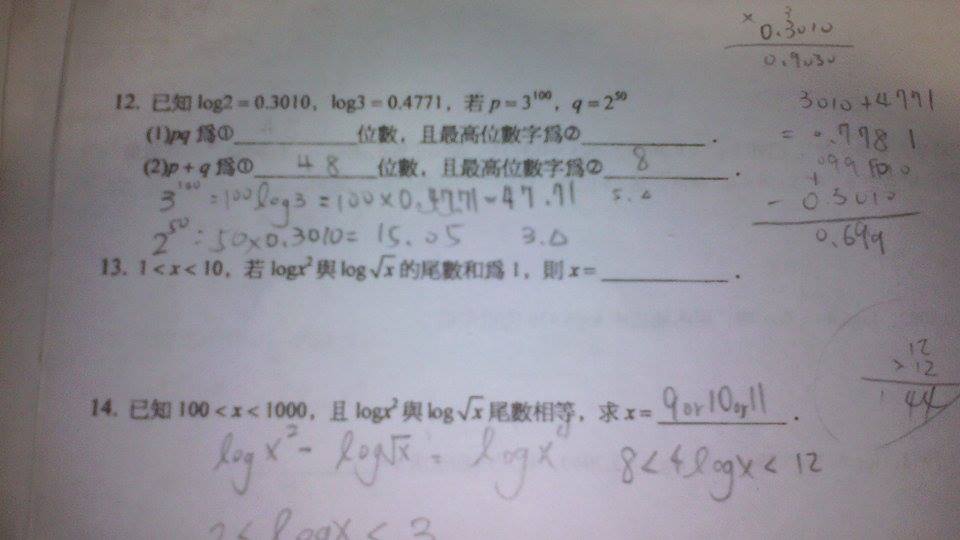 3
× 0.3010
0.9030
12. 已知 log2 = 0.3010, log3 = 0.4771, 若 p = 3^100, q = 2^50
3010 + 4771
(1) pq 爲① ____________ 位數, 且最高位數字爲② ____________ .
= 0.7781
(2) p + q 爲① 48 位數, 且最高位數字爲② 8 .
3^100 = 100 log3 = 100 × 0.4771 = 47.71 5.△
- 0.3010
0.699
2^50 = 50 × 0.3010 = 15.05 3.△
13. 1 < x < 10, 若 logx² 與 log√x 的尾數和爲 1, 則 x = ____________ .
12
× 12
144
14. 已知 100 < x < 1000, 且 logx² 與 log√x 尾數相等, 求 x = 9 or 10 or 11 .
log x² - log√x = log x 8 < 4 log x < 12
2 < log x < 3